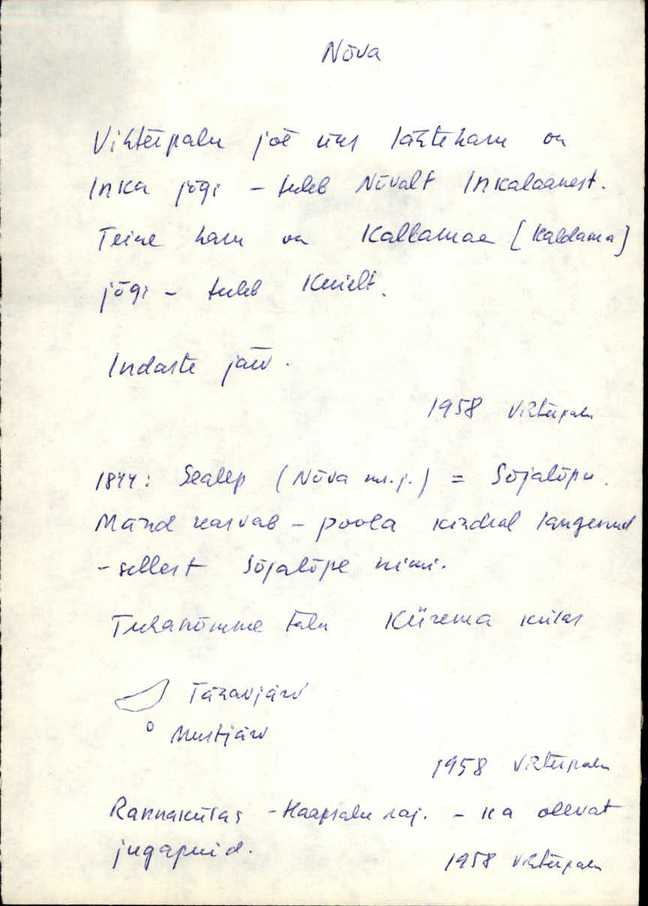 Nõva
Vihterpalu jõe üks lähteharu on
Inka jõgi – tuleb Nõvalt Inkalaanest.
Teine haru on Kallamae [Kaldama]
jõgi – tuleb Kuielt.
Indaste järv.
1958 Vihterpalu
1844: Sealep (Nõva m.j.) = Sõjalõpu.
Mänd kasvab – poola kindral langenud
– sellest Sõjalõpe nimi.
Tuhanõmme talu Kürema külas
Tänavjärv
Mustjärv
1958 Vihterpalu
Rannakülas – Haapsalu raj. – ka olevat
jugapuid.
1958 Vihterpalu